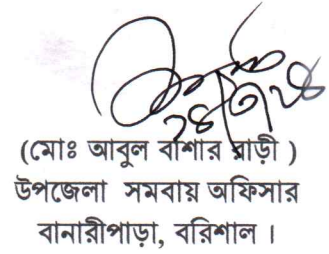 ২৪/৩/২৪
(মোঃ আবুল বাশার রাড়ী )
উপজেলা সমবায় অফিসার
বানারীপাড়া, বরিশাল ।